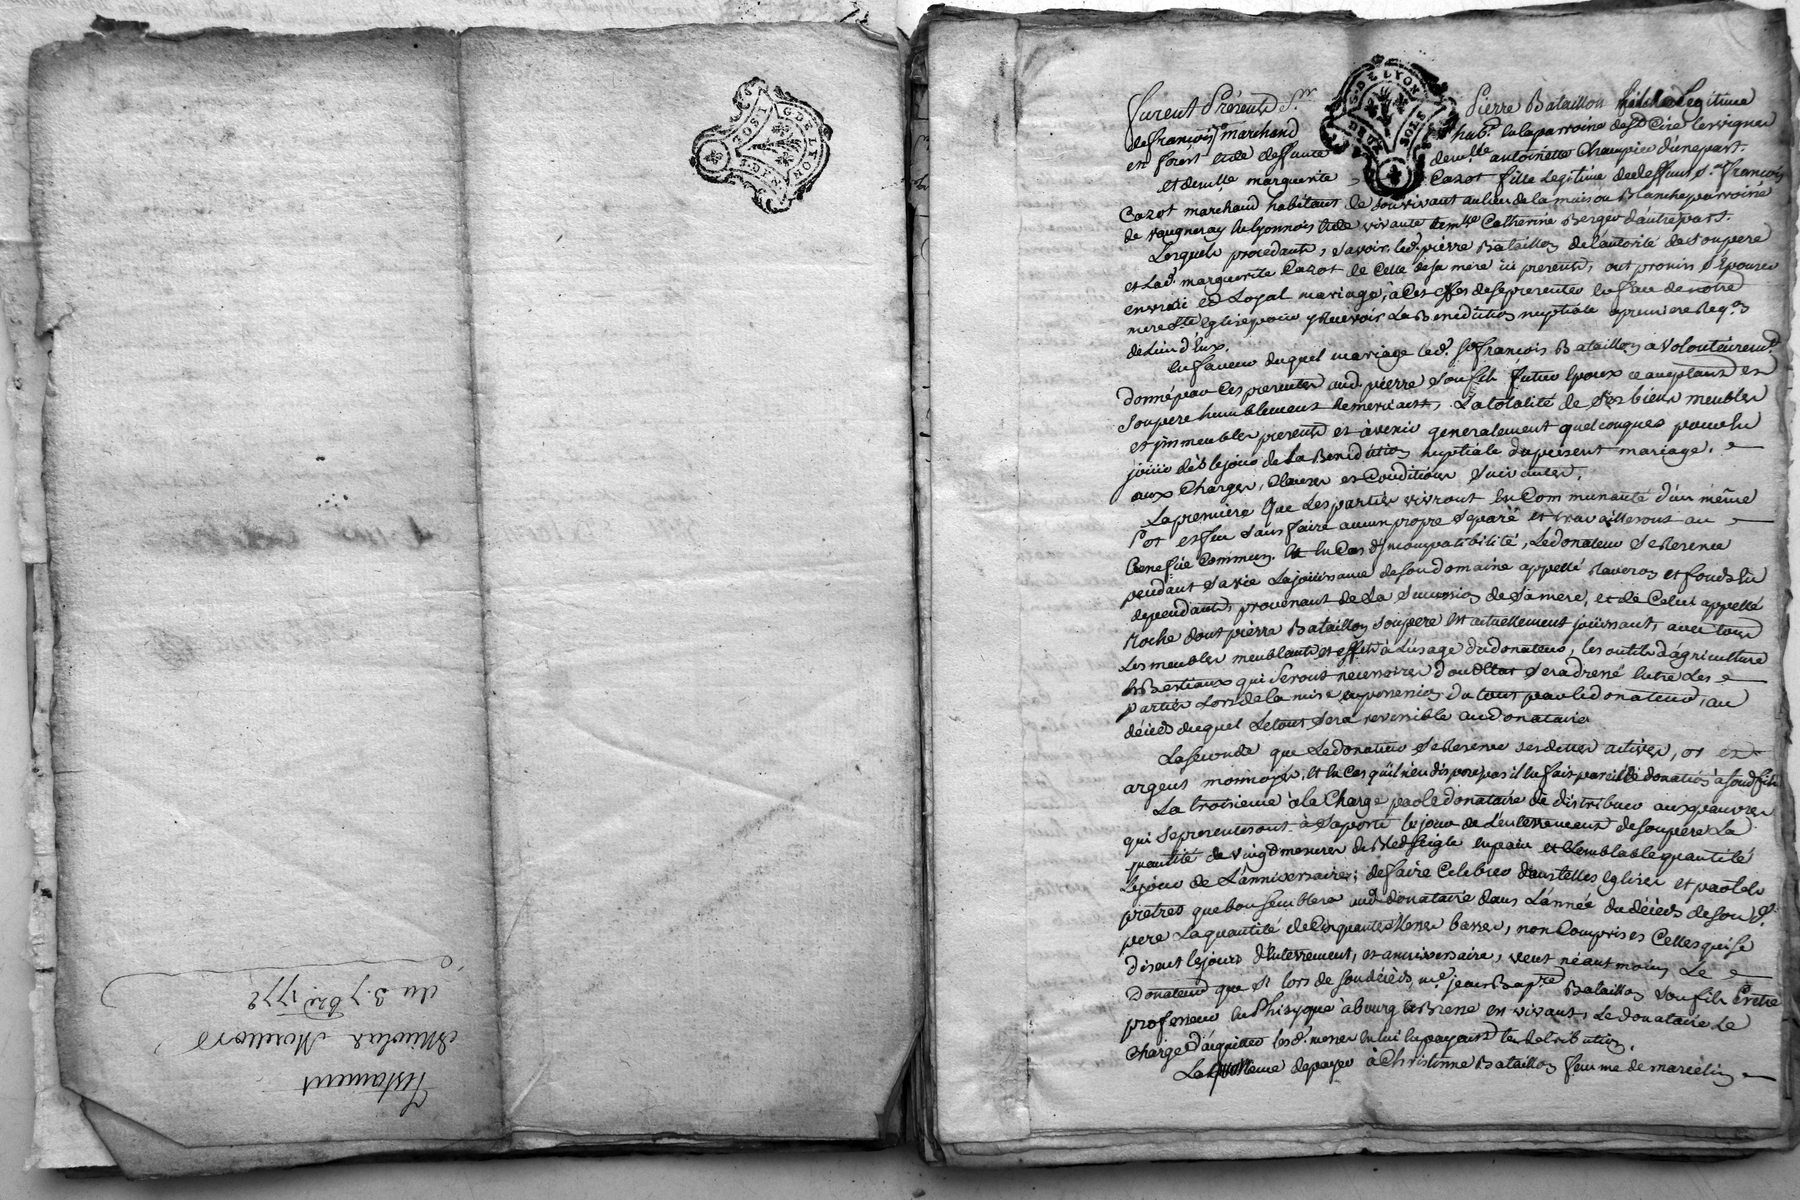 Testament
Nicolas
du 3 7bre 1772
G. DE LYON
CINQ SOLS
G. DE LYON
DEUX SOLS
furent Présents Sr Pierre Bataillon fils Legitime
de françois marchand habt de la parroisse de St Cire les vignes
en forest et de deffunte demlle antoinette Champier d'une part.
et demlle marguerite Cazot fille Legitime de deffunt Sr françois
Cazot marchand habitant de son vivant au lieu de la maison Blanche parroisse
de vaugneray en Lyonnois et de vivante demlle Catherine Berger d'autre part.
Lesquels procedants, savoir led. pierre Bataillon de l'autorité de son pere
et Lad. marguerite Cazot de Celle de sa mere ici presents, ont promis s'Epouser
en vrai et Loyal mariage, à Ces effets de se presenter en face de notre
mere Ste Eglise pour y Recevoir La Benediction nuptiale a premiere Reqon
de L'un d'Eux.
En faveur duquel mariage led. Sr françois Bataillon a volontairemt
donné par Ces presentes aud. pierre son fils futur Epoux ce acceptant et
son pere humblement Remerciant, La totalité de Ses biens meubles
et immeubles presents et à venir generalement quelconques pour en
jouir dès le jour de La Benediction nuptiale du present mariage,
aux Charges, Clauses et Conditions suivantes.
La premiere Que Les parties vivront En Communauté d'un même
Pot et feu sans faire aucun propre separé et travailleront au
Benefice Commun. Et En Cas d'incompatibilité, Le donateur se Reserve
pendant sa vie La jouissance de son domaine appellé Raveron et fonds En
dependants, provenant de La Succession de Sa mere, et de Celui appellé
Roche dont pierre Bataillon son pere est actuellement jouissant, avec tous
Les meubles meublants et effets à L'usage du donateur, les outils d'agriculture
& Bestiaux qui Seront necessaires dont Etat Sera dressé Entre Les
parties Lors de la mise en possession du tout par le donateur, au
décès duquel Le tout Sera reversible au donataire
La seconde que Le donateur se Reserve ses dettes actives, or et
argent monnoyé, Et En Cas qu'il n'en dispose pas il En fait pareille donation à Sond. fils
La troisieme à la Charge par le donataire de distribuer aux pauvres
qui se presenteront à Sa porte le jour de L'enterrement de son pere La
quantité de vingt mesures de Bled Seigle en pain et Semblable quantité
le jour de L'anniversaire; de faire Celebrer dans telles Eglises et par tels
prêtres que bon Semblera aud. donataire dans L'année du décès de son d.
pere La quantité de Cinquante Messes basses, non Comprises Celles qui se
disent les jours d'Enterrement, et anniversaire, veut néantmoins Le
Donateur que Si lors de son décès, me jean Bapte Bataillon Son fils Prêtre
professeur En Phisique à bourg En Bresse est vivant, Le donataire Le
Charge d'acquitter les d. messes en lui En payant La retribution.
La quatrieme de payer à Christinne Bataillon femme de marcelin